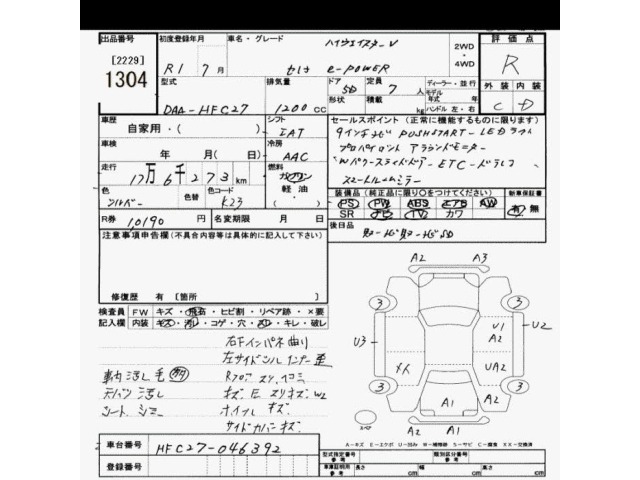 出品番号 初度登録年月 車名・グレード ハイウェイスターV 2WD・4WD 評価点
[2229]
1304
R1 7月 セレナ e-POWER R
型式 排気量 ドア形状 5D 定員 7人 積載 kg ディーラー・並行 モデル年式 年 ハンドル 左・右 外装 内装
DAA-HFC27 1200CC C D
車歴 自家用・( ) シフト IAT セールスポイント (正常に機能するものに限ります)
9インチナビ PUSHSTART-LEDライト
車検 年 月( 日) 冷房 AAC プロパイロット アラウンドモニター
Wパワースライドドア-ETC-ドラレコ
走行 17万6千273km 燃料 ガソリン 軽油 スマートルームミラー
色 シルバー 色替 色コード K23 装備品 (純正品に限り○をつけてください) 新車保証書
PS PW ABS エアB AW 有 無
SR ナビ TV カワ
R券 10190円 名変期限 月 日 後日品 取-ナビ取-ナビSD
注意事項申告欄 (不具合内容等は具体的に記入して下さい)
修復歴 有 [箇所
A2 A3
3 3
U3 U1 A2 U2
XX UA2
3 3
A1
A1
A2
スペア
検査員記入欄 FW キズ・飛石・ヒビ割・リペア跡・×要
内装 キズ・汚レ・コゲ・穴・スレ・キレ・破レ
右Fインパネ曲り
左サイドシル インナー歪
車内汚し毛
天バリ汚し
シート シミ
Rフロア スリ、凹ミ
キズ、E スリキズ W2
ホイル キズ
サイドカバーキズ
車台番号 HFC27-046392
登録番号
A-キズ E-エクボ U-凹み W-補修跡 S-サビ C-腐食 XX-交換済
型式指定番号 参考 類別区分番号 参考
車庫証明用 参考 長さ cm 幅 cm 高さ cm